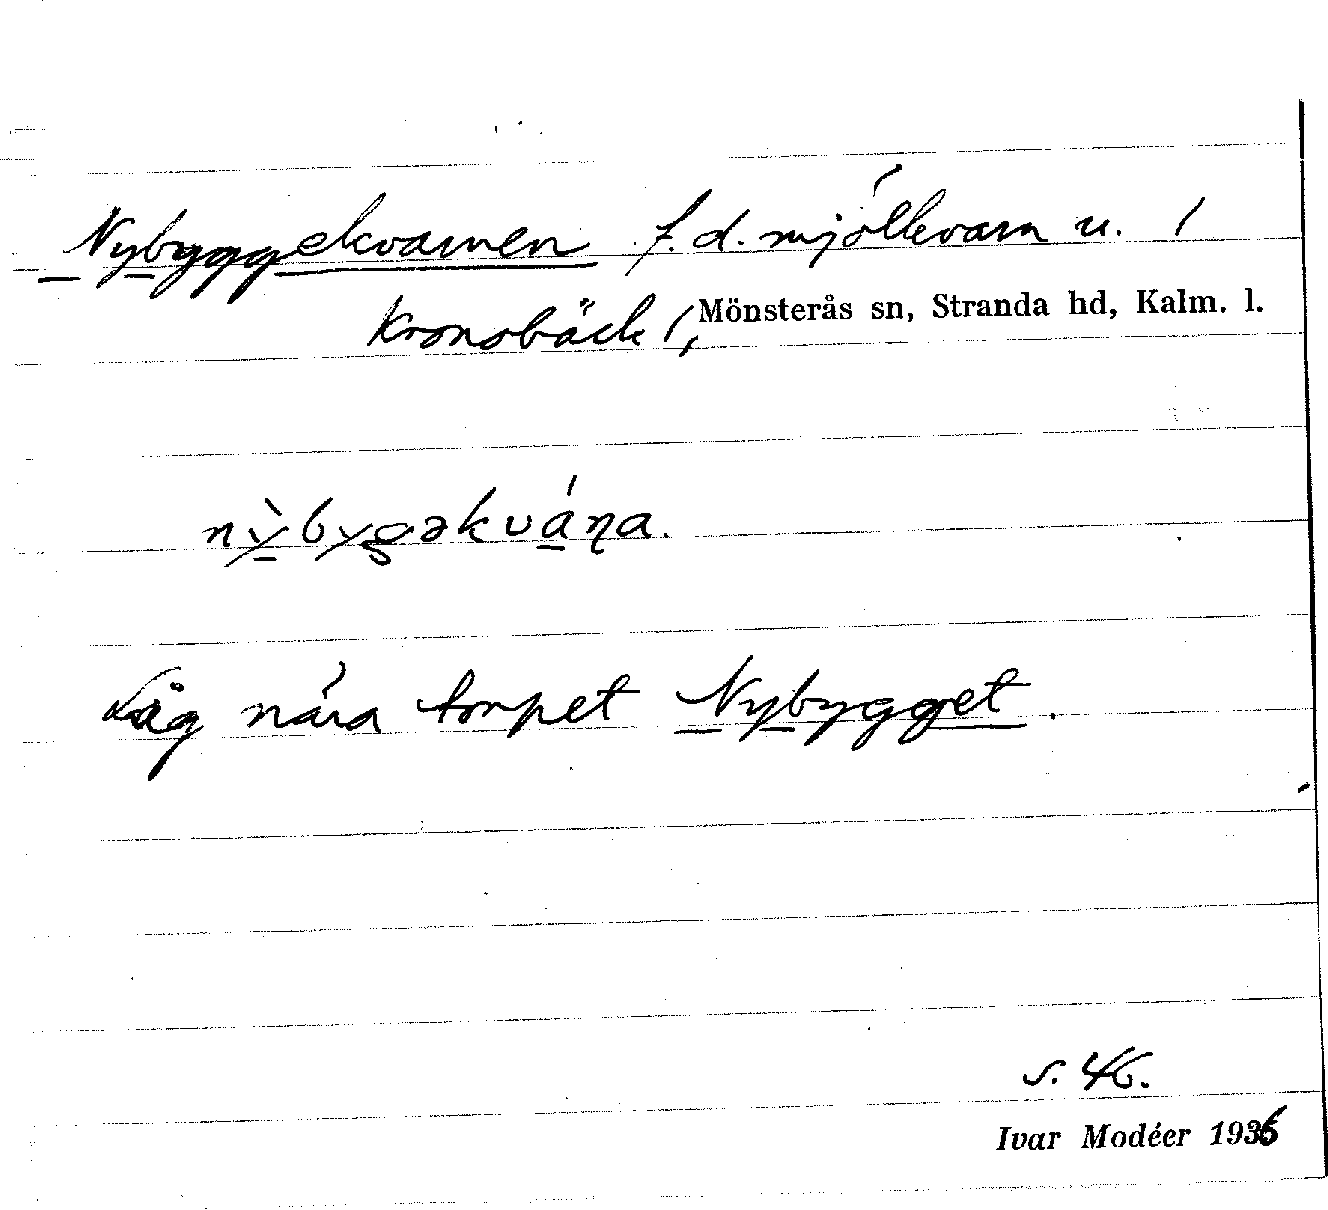 Nybyggekvarnen f.d. mjölkvarn u. /
Kronobäck /, Mönsterås sn, Stranda hd, Kalm. l.
nỳbyg̡əkváɳa.
Låg nära torpet Nybygget.
s. 46.
Ivar Modéer 1936